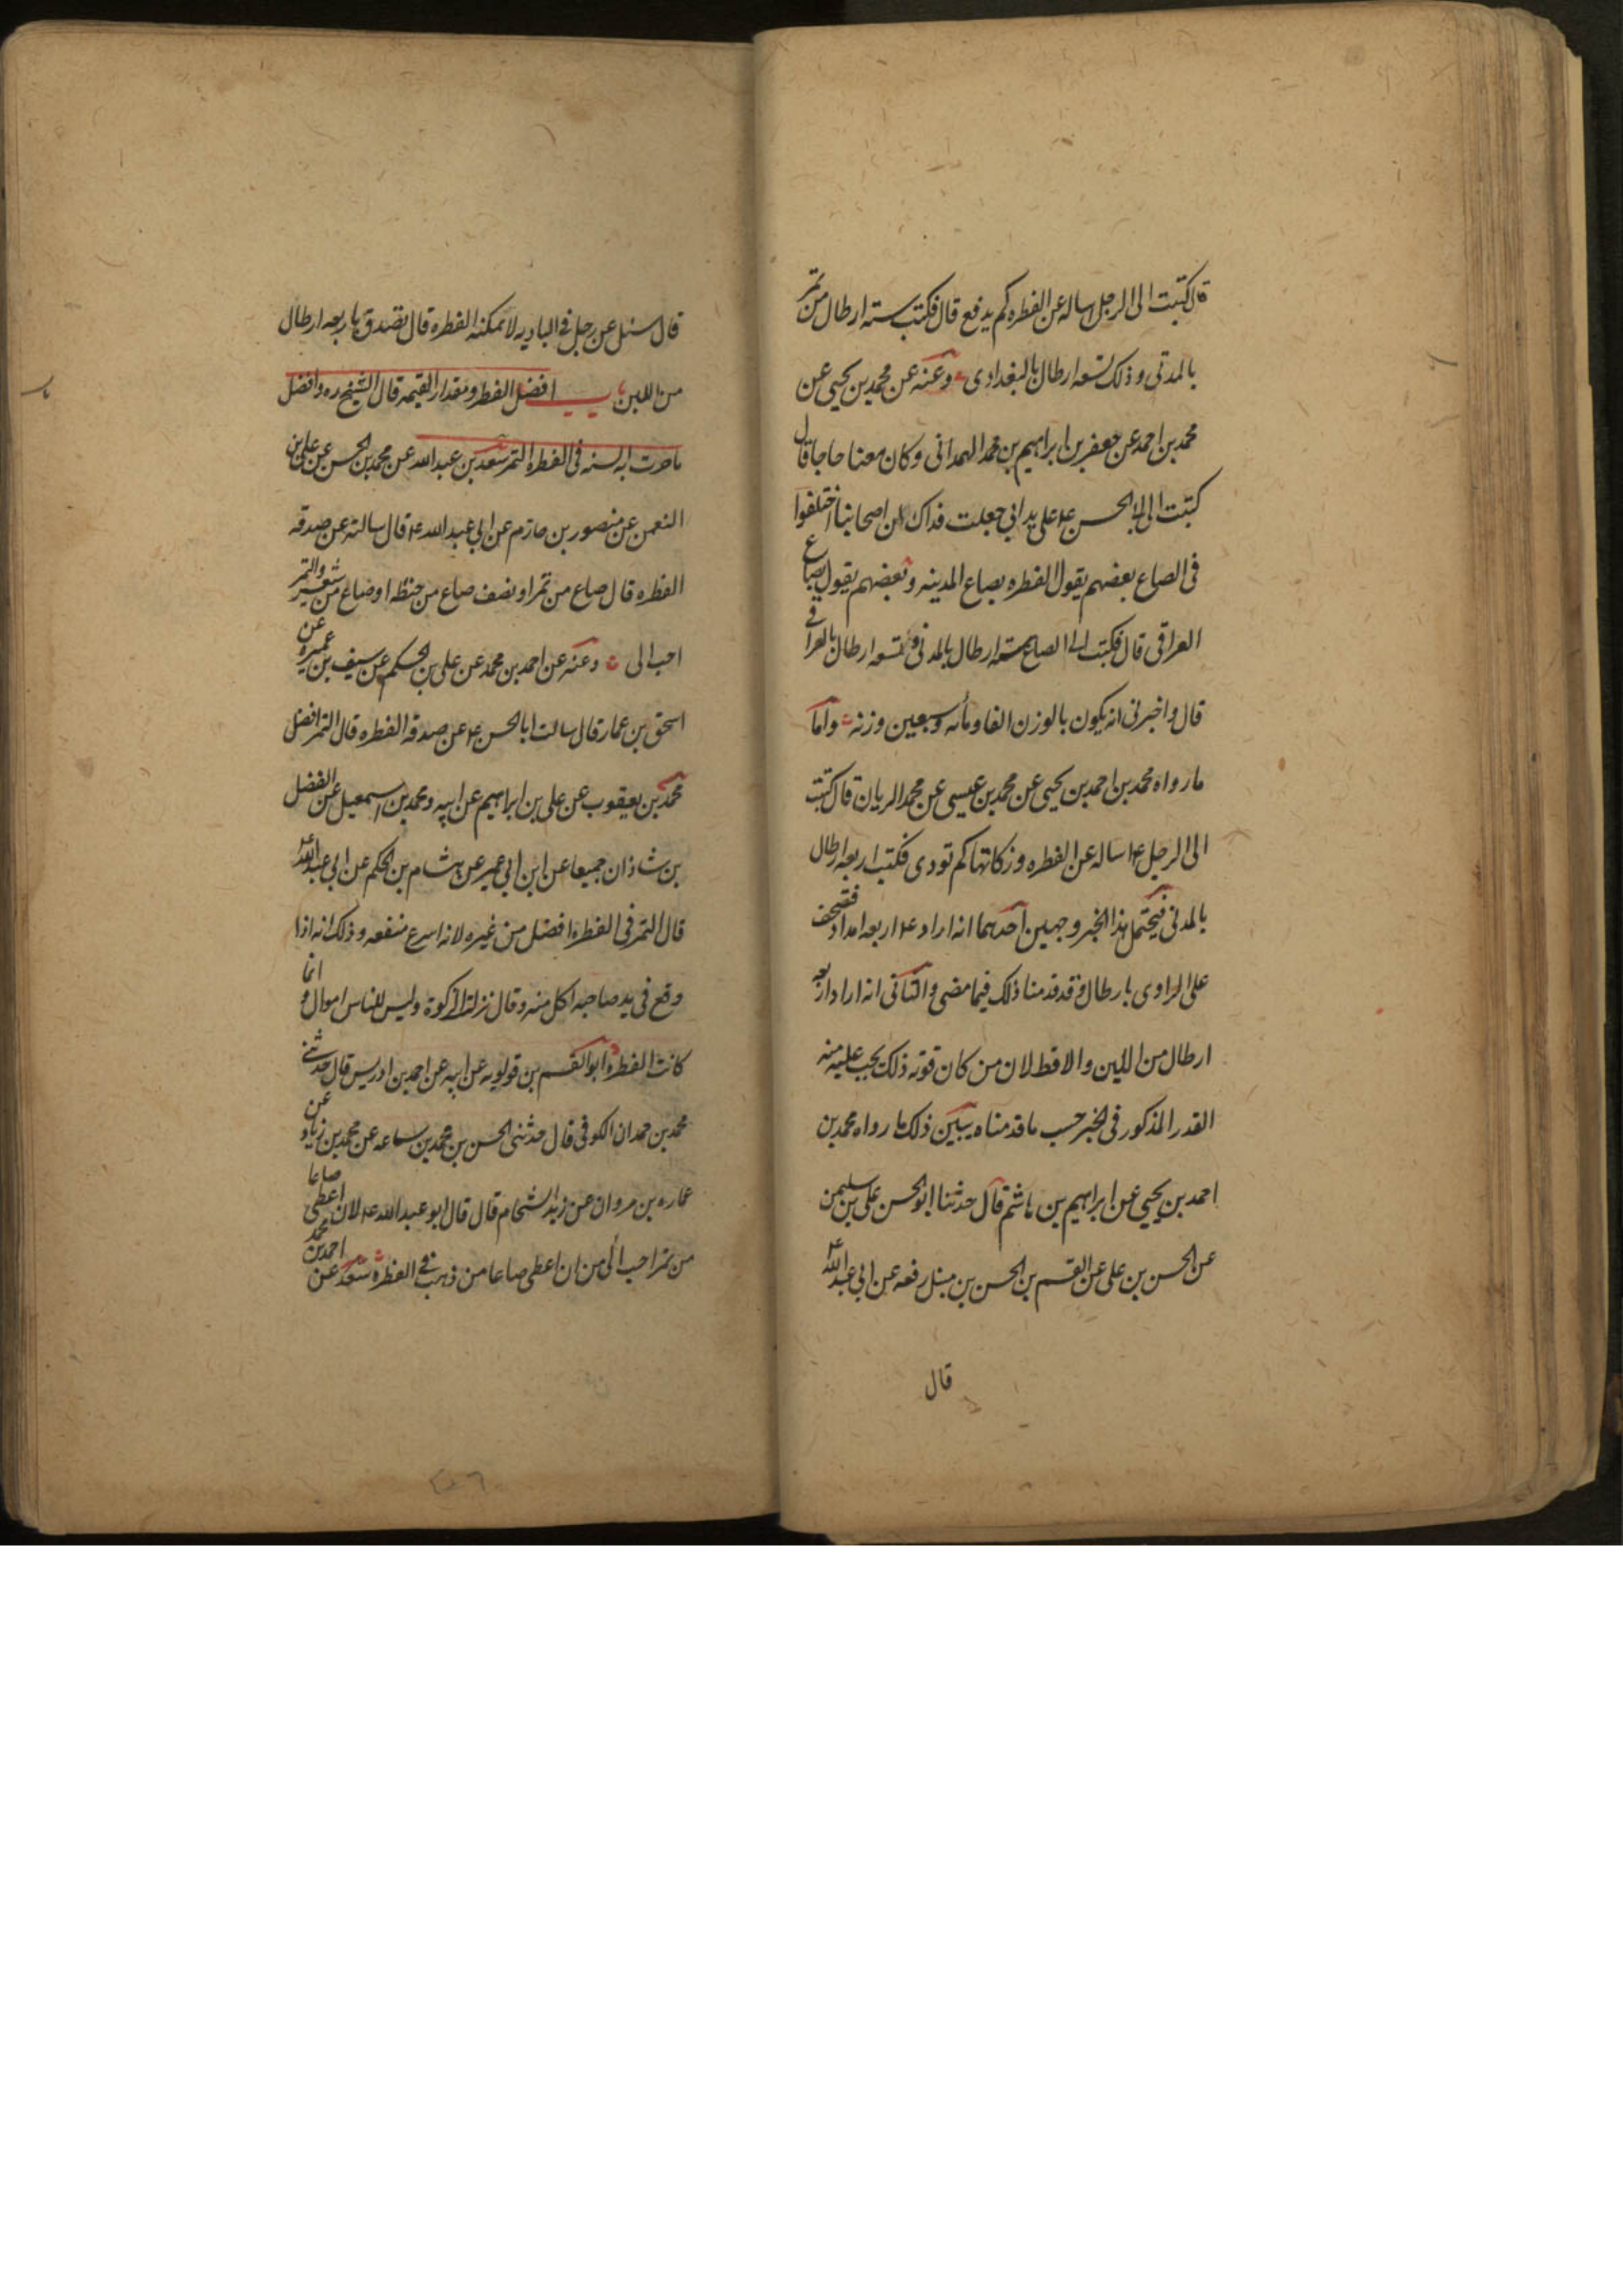 قال كتبت الى الرجل اساله عن الفطره كم يدفع قال فكتب سته ارطال من تمر
بالمدنى و ذلك تسعه ارطال بالبغدادى وعنه عن محمد بن يحيى عن
محمد بن احمد عن جعفر بن ابراهيم بن محمد الهمدانى وكان معنا حاجا قال
كتبت الى ابى الحسن ع على يدابى جعلت فداك ان اصحابنا اختلفوا
فى الصاع بعضهم يقول الفطره بصاع المدينه و بعضهم يقول بصاع
العراقى قال فكتب الى الصاع سته ارطال بالمدنى و تسعه ارطال بالعراقى
قال و اخبرنى انه يكون بالوزن الفا و مأئه و سبعين وزنه واما
ما رواه محمد بن احمد بن يحيى عن محمد بن عيسى عن محمد الريان قال كتبت
الى الرجل ع اساله عن الفطره و زكاتها كم تودى فكتب اربعه ارطال
بالمدنى فيحتمل هذا الخبر وجهين احدهما انه اراد ع اربعه امداد فتصحف
على الراوى بارطال و قد قدمنا ذلك فيما مضى والثانى انه اراد اربعه
ارطال من اللبن والاقط لان من كان قوته ذلك يجب عليه منه
القدر المذكور فى الخبر حسب ما قدمناه يبين ذلك ما رواه محمد بن
احمد بن يحيى عن ابراهيم بن هاشم قال حدثنا ابو الحسن على بن سليمن
عن الحسن بن على عن القسم بن الحسن بن رفعه عن ابى عبد الله ع
قال
قال سئل عن رجل فى الباديه لا تمكنه الفطره قال تصدق باربعه ارطال
من اللبن باب افضل الفطره و مقدار القيمه قال الشيخ ره وافضل
ما جرت به السنه فى الفطره التمر سعد بن عبد الله عن محمد بن الحسن عن على بن
النعمن عن منصور بن حازم عن ابى عبد الله ع قال سالته عن صدقه
الفطره قال صاع من تمر او نصف صاع من حنطه او صاع من شعير والتمر
احب الى وعنه عن احمد بن محمد عن على بن الحكم عن سيف بن عميره عن
اسحق بن عمار قال سالت ابا الحسن ع عن صدقه الفطره قال التمر افضل
محمد بن يعقوب عن على بن ابراهيم عن ابيه و محمد بن اسمعيل عن الفضل
بن شاذان جميعا عن ابن ابى عمير عن هشام بن الحكم عن ابى عبد الله ع
قال التمر فى الفطره افضل من غيره لانه اسرع منفعه و ذلك انه اذا
وقع فى يد صاحبه اكل منه و قال نزلت الزكوة و ليس للناس اموال و انما
كانت الفطره ابو القسم بن قولويه عن ابيه عن احمد بن ادريس قال حدثنى
محمد بن حمدان الكوفى قال حدثنى الحسن بن محمد بن سماعه عن محمد بن زياد عن
عماره بن مروان عن زيد الشحام قال قال ابو عبد الله ع لان اعطى صاعا
من تمر احب الى من ان اعطى صاعا من ذهب فى الفطره سعد عن احمد بن محمد